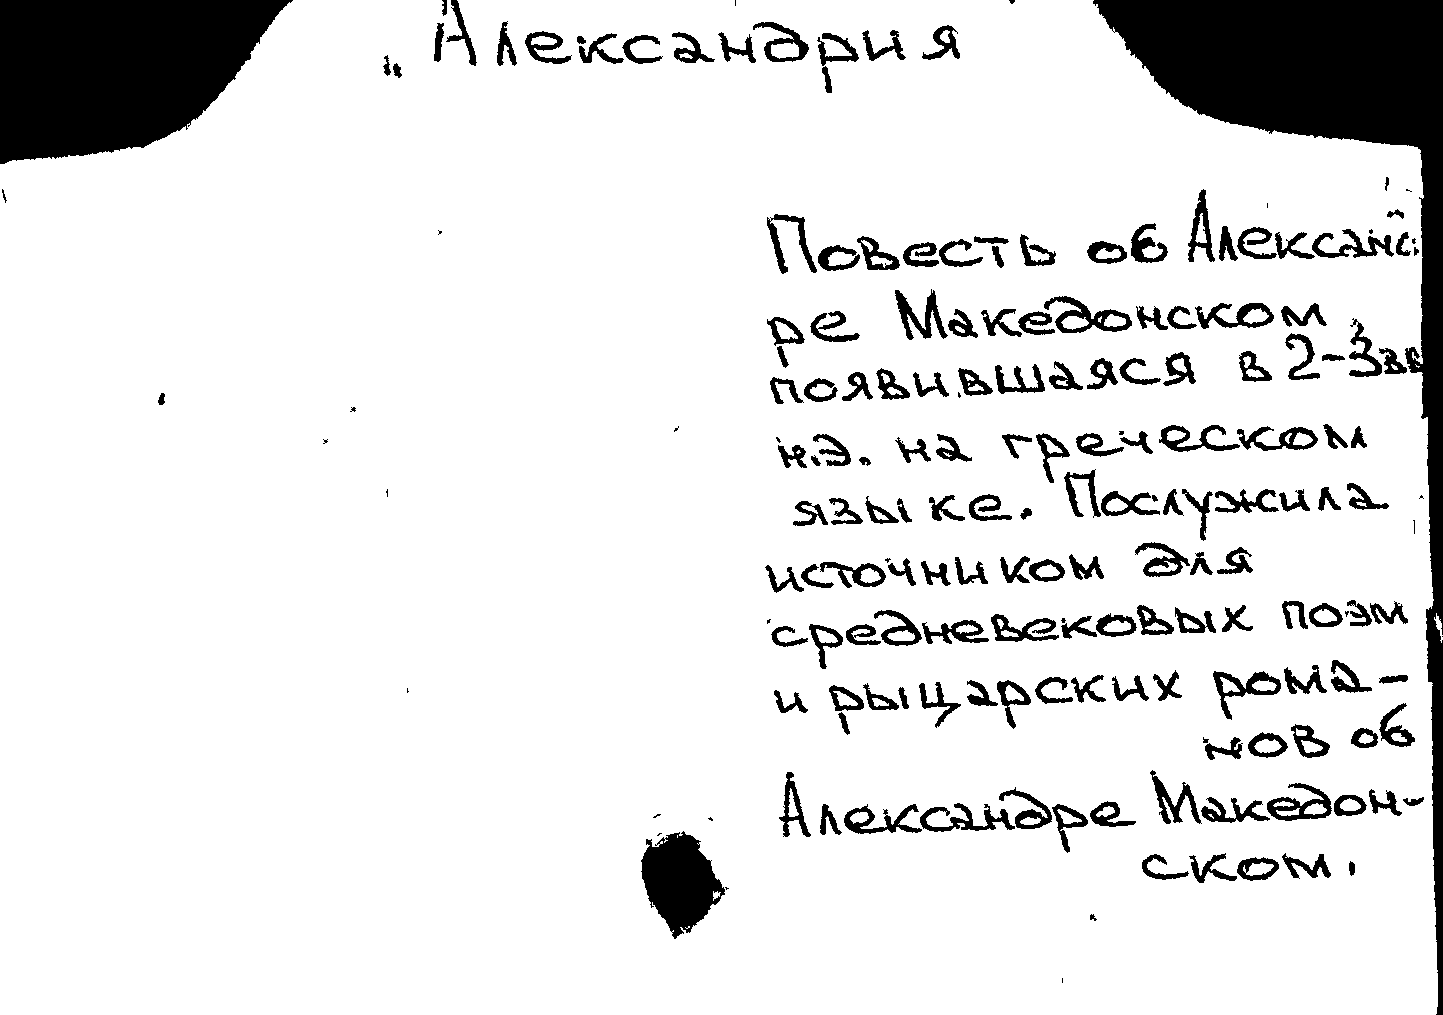 „Александрия
Повесть об Александ
ре Македонском,
появившаяся в 2-3вв
н.э. на греческом
языке. Послужила
источником для
средневековых поэм
и рыцарских рома-
нов об
Александре Македон-
ском.